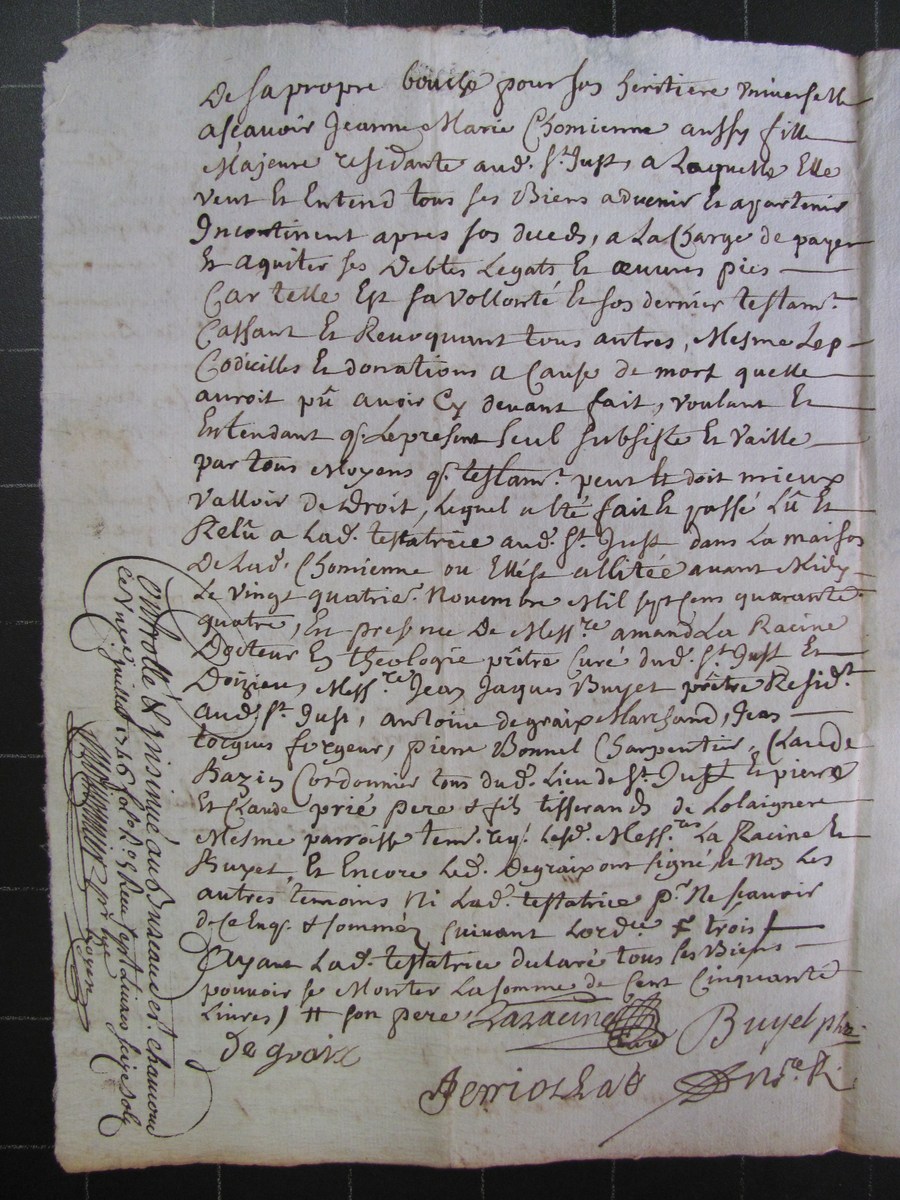 De sa propre bouche pour son heritiere universelle
ascavoir Jeanne Marie Chomienne aussy fille
Majeure residante aud. St. Just, a Laquelle Elle
veut Et Entend tous ses Biens advenir Et apartenir
Incontinent apres son deceds, a La Charge de payer
Et aquiter ses Debtes Legats Et œuvres pies
Car telle Est sa vollonté Et son dernier testamt.
Cassant Et Revoquant tous autres, Mesme Les
Codicilles Et donations a Cause de mort quelle
auroit pû avoir Cy devant fait, voulant Et
Entendant q. Le present seul subsiste Et vaille
par tous Moyens q. testamt. peut Et doit mieux
valloir de Droit, Lequel a Eté fait Et passé Lû Et
Relû a Lad. testatrice aud. St. Just dans La maison
De Lad. Chomienne ou Elle Est allitée avant Midy
Le vingt quatrie. Novembre Mil sept Cens quarante
quatre, En presence De Messre. amand La Racine
Docteur En theologie prêtre Curé dud. St. Just Et
Doizieu, Messre. Jean Jaques Buyet prêtre Residt.
aud. St. Just, antoine degraix Marchand, Jean
torques forgeur, pierre Bonnel Charpentier, Claude
Bazin Cordonnier tous dud. Lieu de St. Just Et pierre
Et Claude prié pere & fils tisserands de Lolaignere
Mesme parroisse tem. req. Lesd. Messres. La Racine Et
Buyet, Et Encore Led. Degraix ont signé, Et Non Les
autres temoins Ni Lad. testatrice pr. Ne scavoir
de Ce Enq. & sommés suivant Lordce trois
Ayant Lad. testatrice declaré tous ses Biens
pouvoir se Monter La somme de Cent Cinquante
Livres, # son pere, Laracine curé Buyet ptre
de graix
Perriochat Nre. R.
Controllé & Insinué au Bureau de St. chamond
ce vingt Juillet 1746 fol. Reçu sept Livres seize sols